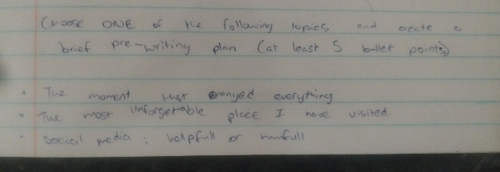 Choose ONE of the following topics and create a
brief pre-writing plan (at least 5 bullet points)
• The moment that changed everything
• The most unforgetable place I have visited
• Social media : helpfull or harmfull